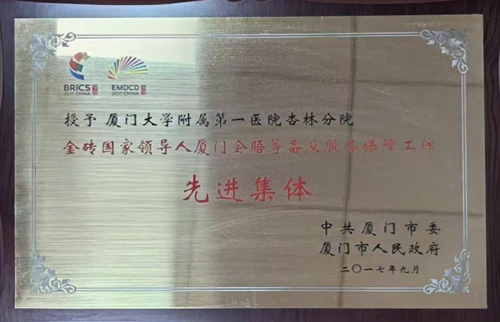 BRICS
2017 CHINA
EMDCD
2017 CHINA
授予 厦门大学附属第一医院杏林分院
金砖国家领导人厦门会晤筹备及服务保障工作
先进集体
中共厦门市委
厦门市人民政府
二〇一七年九月